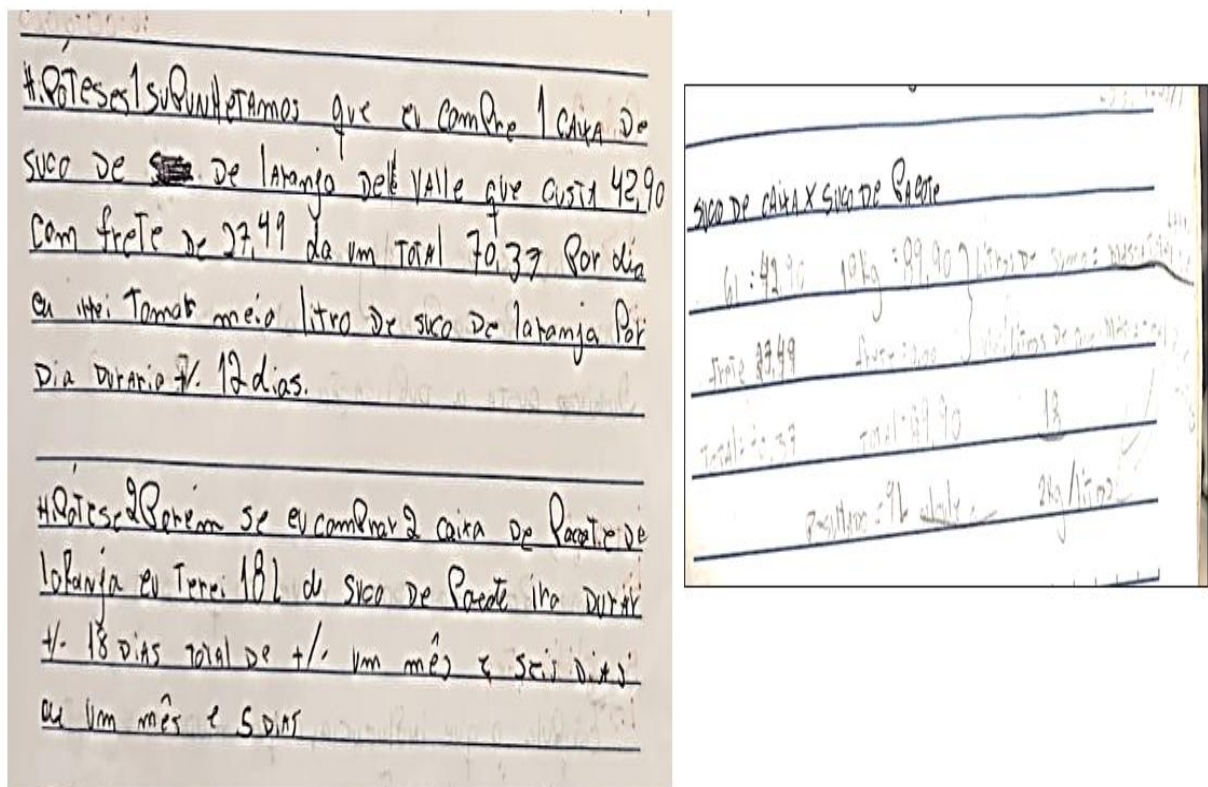 HipóTeses 1 SUPUNHETAMOS que eu ComPre 1 CAIXA De
suco De De laranja Dell VAlle que custa 42,90
Com freTe De 27,49 da um ToTAl 70,37 Por dia
eu irei Tomar meio litro De suco De laranja Por
Dia DurAria +/- 12 dias.
HipóTese 2 Porém se eu comPrar 2 caixa De Pacote De
laranja eu Terei 18L de suco De Pacote ira DurAr
+/- 18 DIAS ToTAl De +/- um mês e seis DiAs
ou um mês e 5 DIAS
SUCO DE CAIXA X SUCO DE PACOTE
6l: 42,90 10kg = 89,90 litros De
freTe 27,49
ToTAl = 70,37 ToTAl: 89,90 18
= 9L 2kg/litros